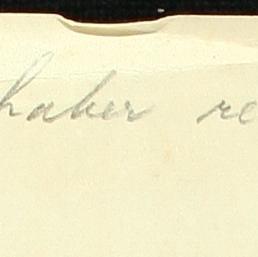 haber re